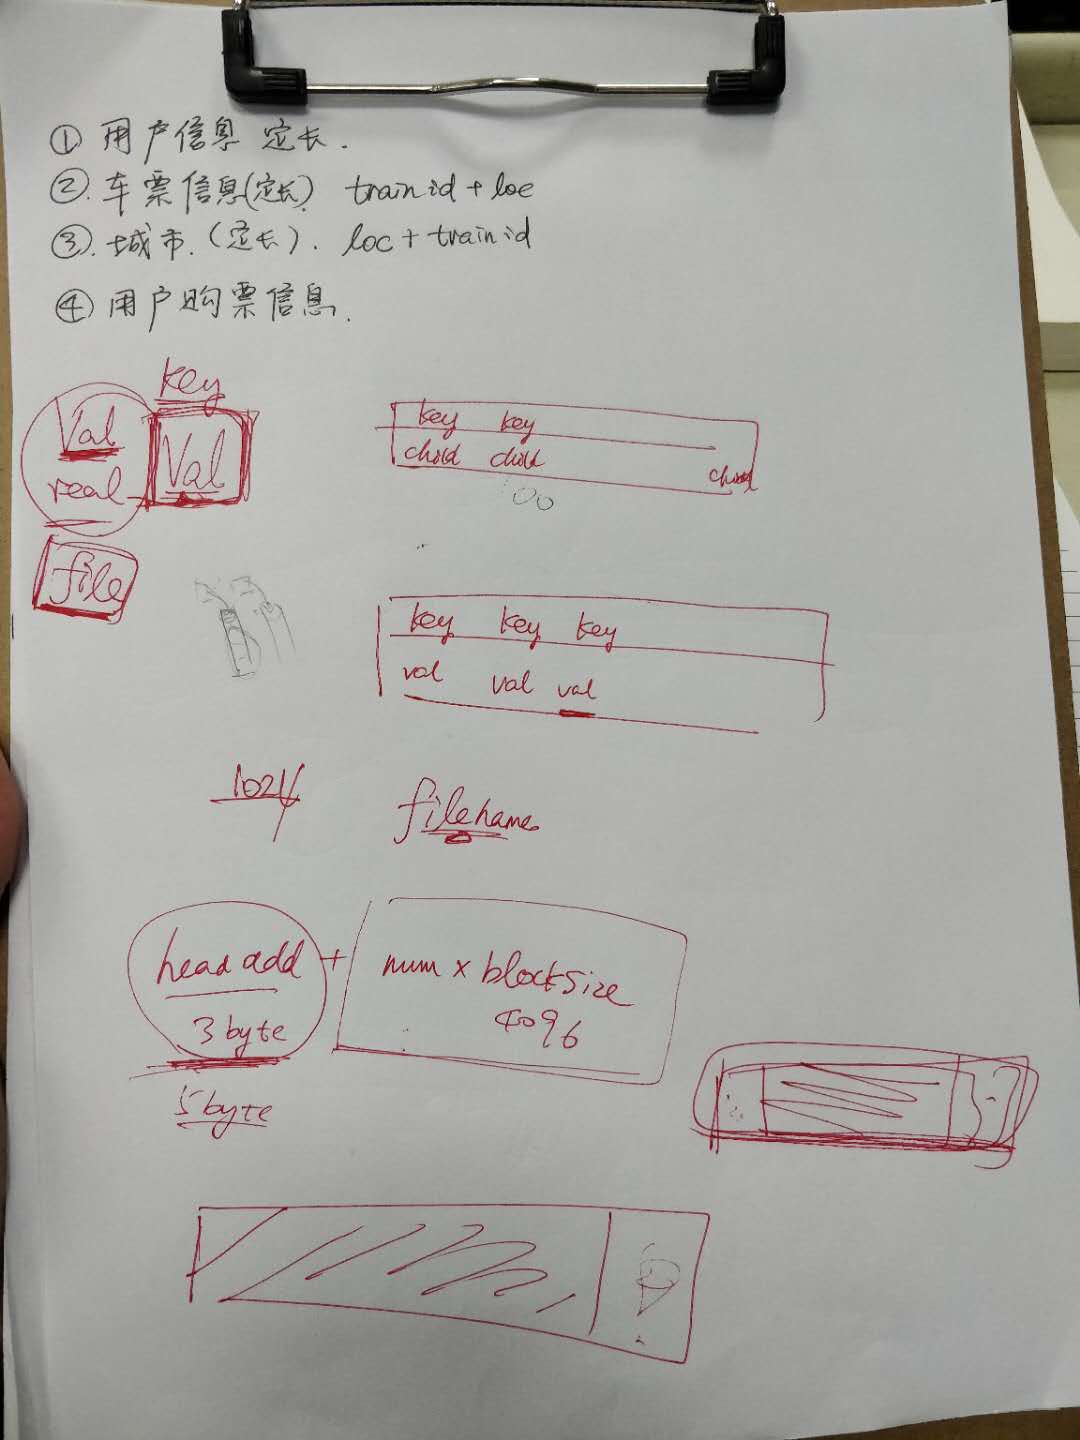 ① 用户信息 定长.
②. 车票信息(定长) trainid + loc
③. 城市. (定长). loc + trainid
④ 用户购票信息.
key
Val Val
real
file
key key
child child child
key key key
val val val
1024
filename
head add + num × blocksize
3 byte 4096
5 byte